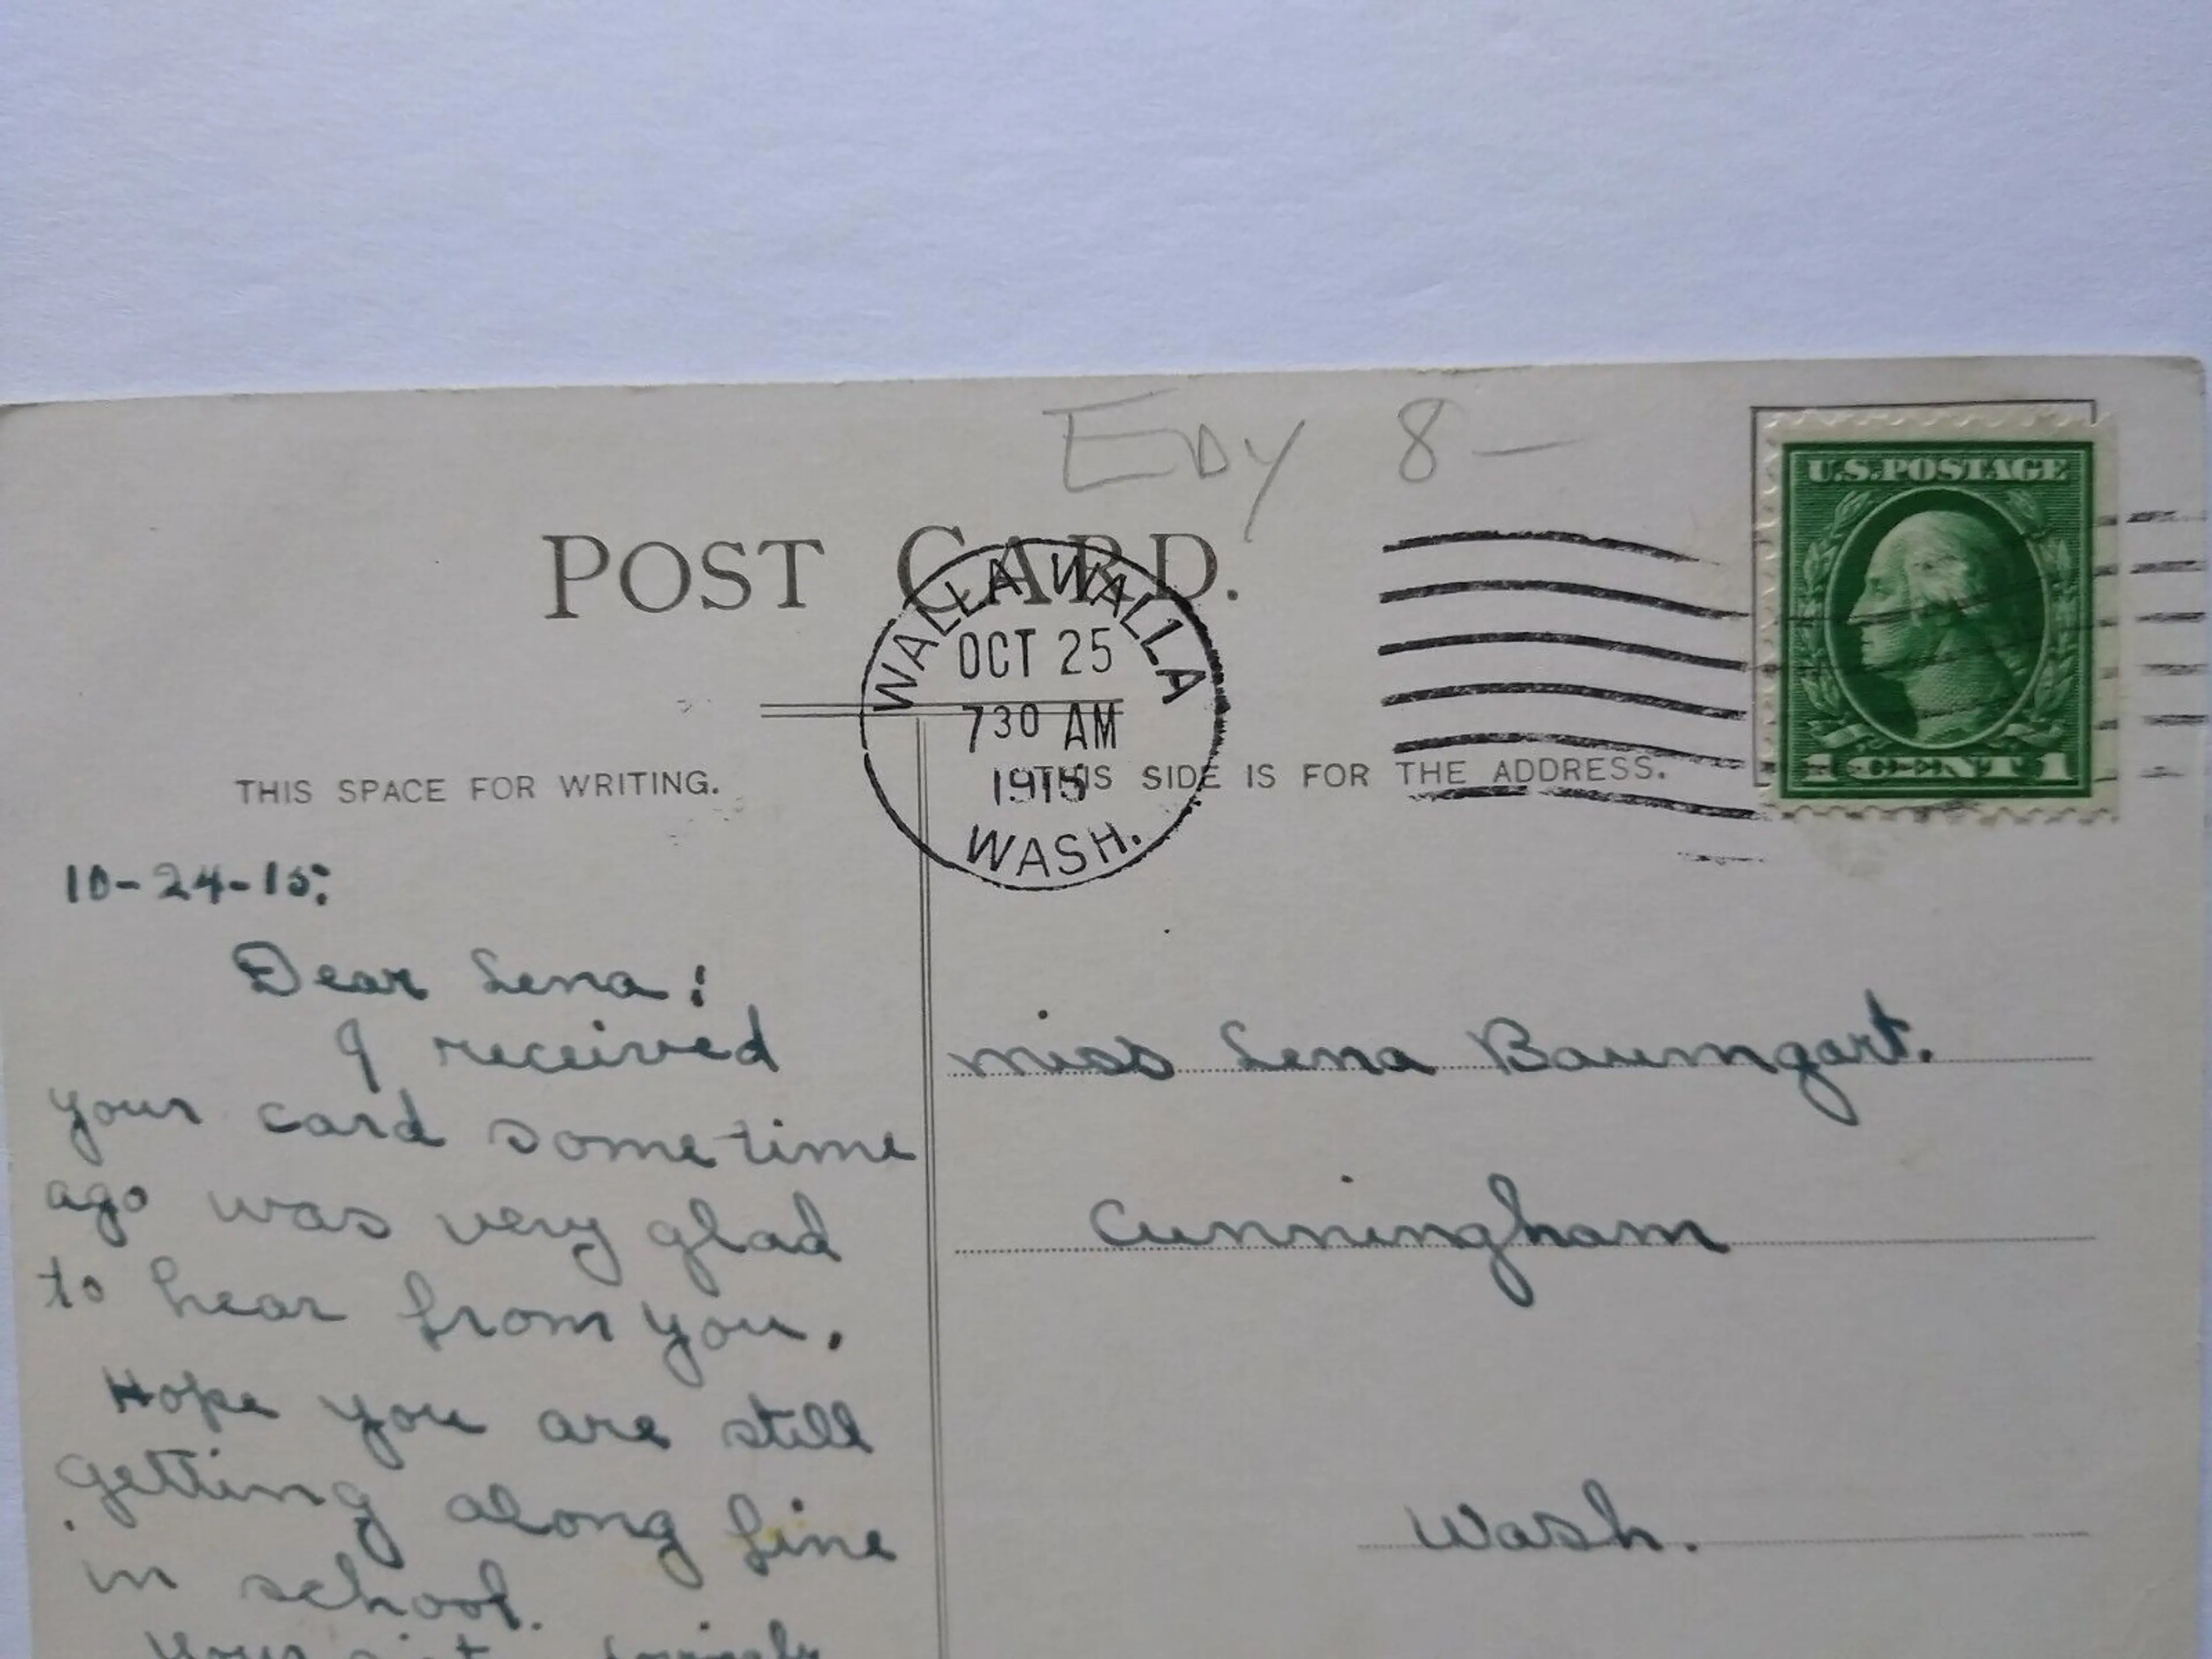 EDY 8-
U.S. POSTAGE
1 CENT 1
POST CARD.
WALLA WALLA
OCT 25
7 30 AM
1915
WASH.
THIS SPACE FOR WRITING.
THIS SIDE IS FOR THE ADDRESS.
10-24-15:
Dear Lena:
I received
your card sometime
ago was very glad
to hear from you.
Hope you are still
getting along fine
in school.
Miss Lena Baumgart.
Cunningham
Wash.